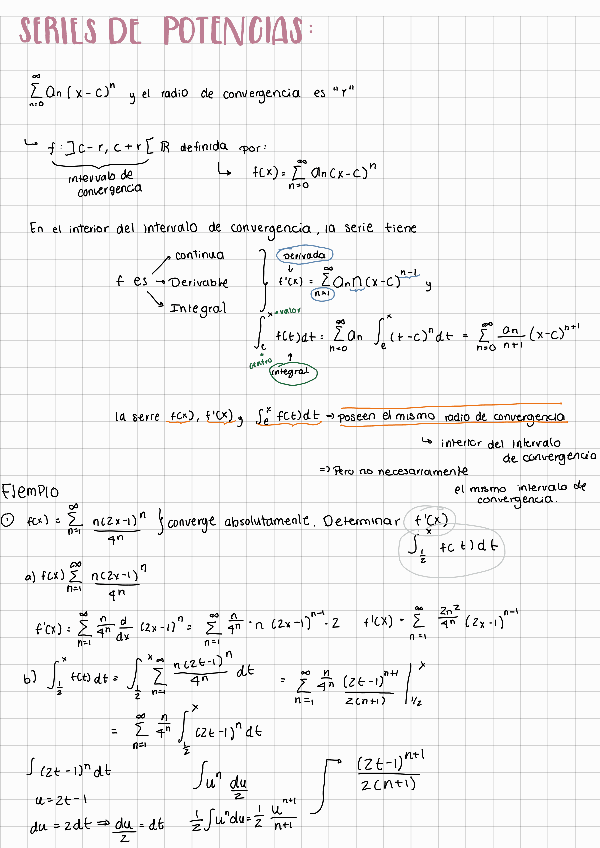 SERIES DE POTENCIAS:
∞ Σ n=0 an (x-c)^n y el radio de convergencia es "r"
↳ f: ]c-r, c+r[ ℝ definida por:
intervalo de convergencia
↳ f(x) = ∞ Σ n=0 an(x-c)^n
En el interior del intervalo de convergencia, la serie tiene
f es → continua
→ Derivable
→ Integral
Derivada
↓
f'(x) = ∞ Σ n=1 an n(x-c)^(n-1) y
x→valor
∫_c^x f(t)dt = ∞ Σ n=0 an ∫_c^x (t-c)^n dt = ∞ Σ n=0 an/(n+1) (x-c)^(n+1)
centro
↑
integral
la serie f(x), f'(x) y ∫_c^x f(t)dt → poseen el mismo radio de convergencia
↳ interior del intervalo de convergencia
=> Pero no necesariamente el mismo intervalo de convergencia.
Ejemplo
① f(x) = ∞ Σ n=1 n(2x-1)^n / 4^n } converge absolutamente. Determinar f'(x)
∫_(1/2)^x f(t)dt
a) f(x) ∞ Σ n=1 n(2x-1)^n / 4^n
f'(x) = ∞ Σ n=1 n/4^n d/dx (2x-1)^n = ∞ Σ n=1 n/4^n · n (2x-1)^(n-1) · 2 f'(x) = ∞ Σ n=1 2n^2/4^n (2x-1)^(n-1)
b) ∫_(1/2)^x f(t)dt = ∫_(1/2)^x ∞ Σ n=1 n(2t-1)^n / 4^n dt = ∞ Σ n=1 n/4^n (2t-1)^(n+1) / 2(n+1) |_(1/2)^x
= ∞ Σ n=1 n/4^n ∫_(1/2)^x (2t-1)^n dt
∫(2t-1)^n dt
u=2t-1
du = 2dt ⇒ du/2 = dt
∫u^n du/2
1/2 ∫u^n du = 1/2 u^(n+1)/(n+1)
(2t-1)^(n+1) / 2(n+1)